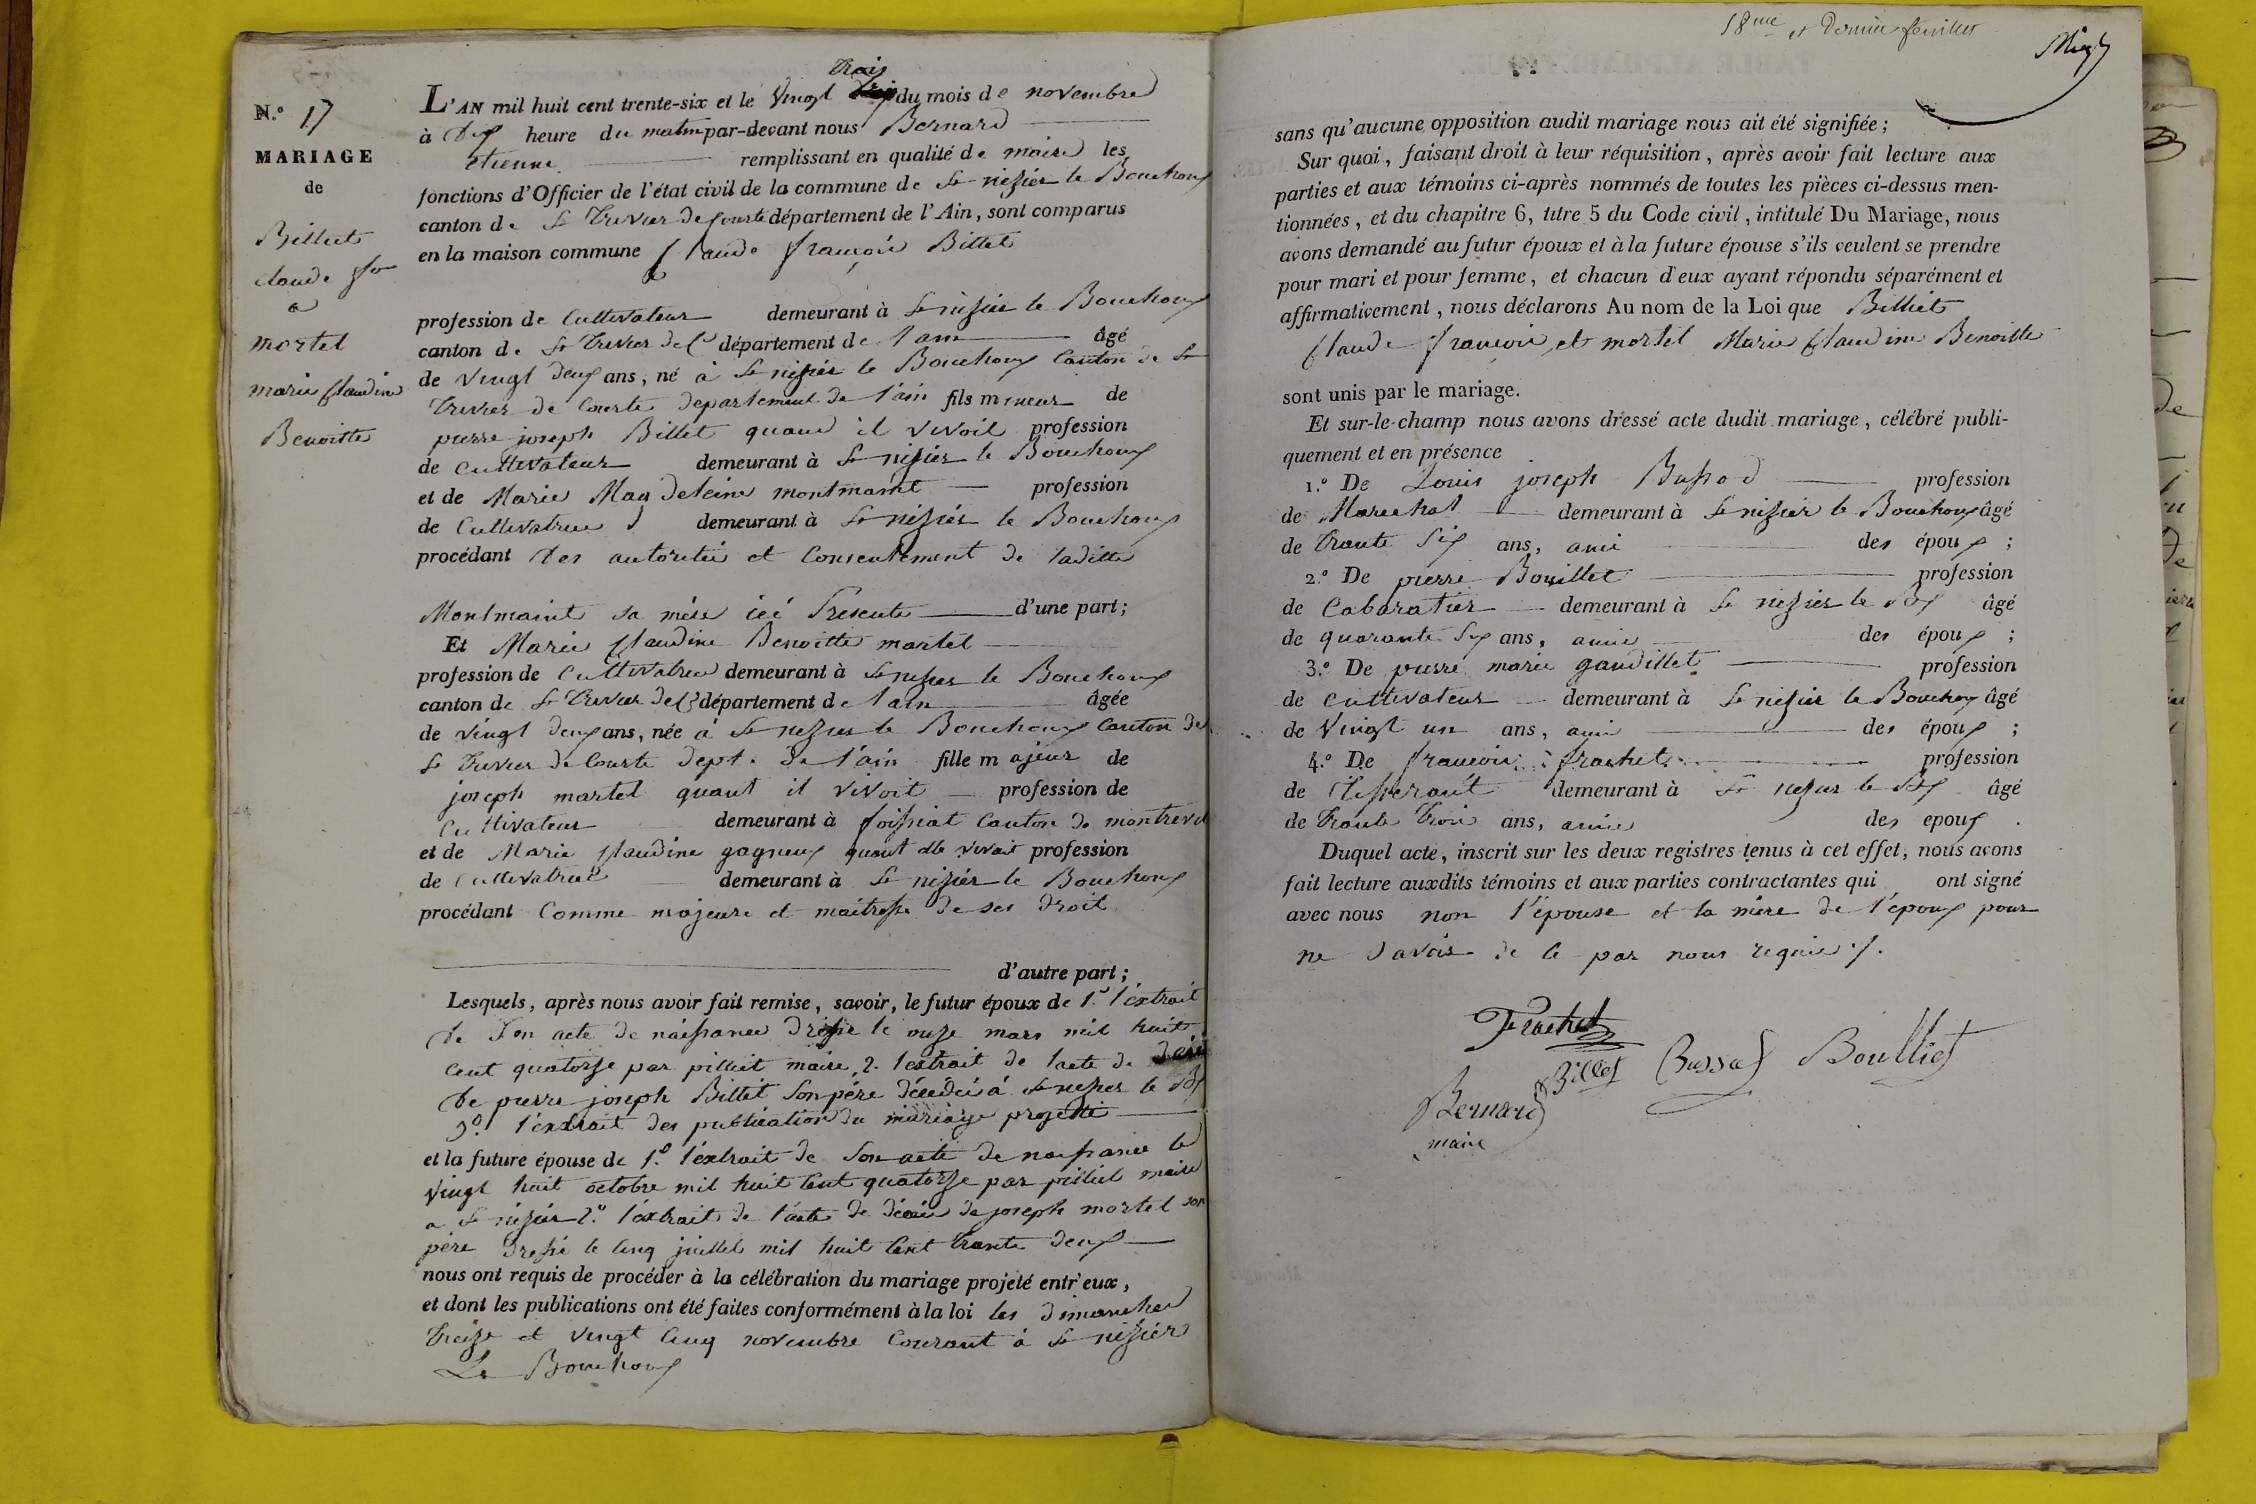 N.° 17
MARIAGE
de
Billiet
claude f.ois
a
mortel
marie Claudine
Benoitte
trois
L'AN mil huit cent trente-six et le Vingt du mois de novembre
à dix heure du matin par-devant nous Bernard
etienne remplissant en qualité de maire les
fonctions d'Officier de l'état civil de la commune de St nizier le Bouchoux
canton de St Trivier de Courte département de l'Ain, sont comparus
en la maison commune Claude françois Billet
profession de Cultivateur demeurant à St nizier le Bouchoux
canton de St Trivier de C.te département de l'ain âgé
de vingt deux ans, né à St nizier le Bouchoux Canton de St
Trivier de Courte departement de l'ain fils mineur de
pierre joseph Billet quand il vivoit profession
de Cultivateur demeurant à St nizier le Bouchoux
et de Marie Magdeleine montmaint profession
de Cultivatrice demeurant à St nizier le Bouchoux
procédant des autorités et Consentement de laditte
Montmaint sa mére icé Presente d'une part;
Et Marie Claudine Benoitte martel
profession de Cultivatrice demeurant à St nizier le Bouchoux
canton de St Trivier de C.te département de l'ain âgée
de vingt deux ans, née à St nizier le Bouchoux Canton de
St Trivier de Courte dept. de l'ain fille majeur de
joseph martel quant il vivoit profession de
Cultivateur demeurant à foissiat Canton de montrevel
et de Marie Claudine gagneux quant elle vivait profession
de Cultivatrice demeurant à St nizier le Bouchoux
procédant Comme majeure et maitresse de ses droit
d'autre part;
Lesquels, après nous avoir fait remise, savoir, le futur époux de 1.° l'éxtrait
de Son acte de naissance dressé le onze mars mil huit
Cent quatorze par pilliet maire, 2. l'extrait de l'acte de décè
de pierre joseph Billet Son pére décédé à St nizier le Bx
3.° l'éxtrait des publication du mariage projetté
et la future épouse de 1.° l'éxtrait de Son acte de naissance le
vingt huit octobre mil huit Cent quatorze par pilliet maire
a St nizier 2.° l'éxtrait de l'acte de décès de joseph mortel son
pére dressé le Cinq juillet mil huit Cent trente deux
nous ont requis de procéder à la célébration du mariage projeté entr'eux,
et dont les publications ont été faites conformément à la loi les dimanches
treize et vingt Cinq novembre Courant à St nizier
Le Bouchoux
18me et Dernier feuillet
sans qu'aucune opposition audit mariage nous ait été signifiée;
Sur quoi, faisant droit à leur réquisition, après avoir fait lecture aux
parties et aux témoins ci-après nommés de toutes les pièces ci-dessus men-
tionnées, et du chapitre 6, titre 5 du Code civil, intitulé Du Mariage, nous
avons demandé au futur époux et à la future épouse s'ils veulent se prendre
pour mari et pour femme, et chacun d'eux ayant répondu séparément et
affirmativement, nous déclarons Au nom de la Loi que Billiet
Claude françois et mortel Marie Claudine Benoitte
sont unis par le mariage.
Et sur-le-champ nous avons dressé acte dudit mariage, célébré publi-
quement et en présence
1.° De Louis joseph Bussod profession
de Marechal demeurant à St nizier le Bouchoux âgé
de Trante Six ans, ami des époux;
2.° De pierre Bouillet profession
de Cabaratier demeurant à St nizier le Bx âgé
de quarante Six ans, amie des époux;
3.° De pierre marie gaudillet profession
de Cultivateur demeurant à St nizier le Bouchoux âgé
de Vingt un ans, ami des époux;
4.° De françois frachet profession
de Tisserant demeurant à St nizier le Bx âgé
de Trante Trois ans, amie des epoux.
Duquel acte, inscrit sur les deux registres tenus à cet effet, nous avons
fait lecture auxdits témoins et aux parties contractantes qui ont signé
avec nous non l'épouse et la mére de l'epoux pour
ne Savoir de ce par nous requis ./.
Frachet
Billet Bussod Boulliet
Bernard
maire